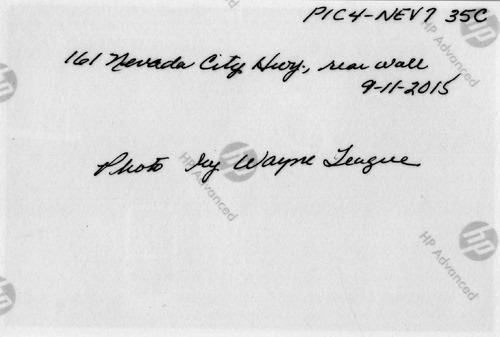 PIC4-NEV7 35C
161 Nevada City Hwy., rear wall
9-11-2015
Photo by Wayne League
hp
HP Advanced
hp
HP Advanced
hp
HP Advanced
hp